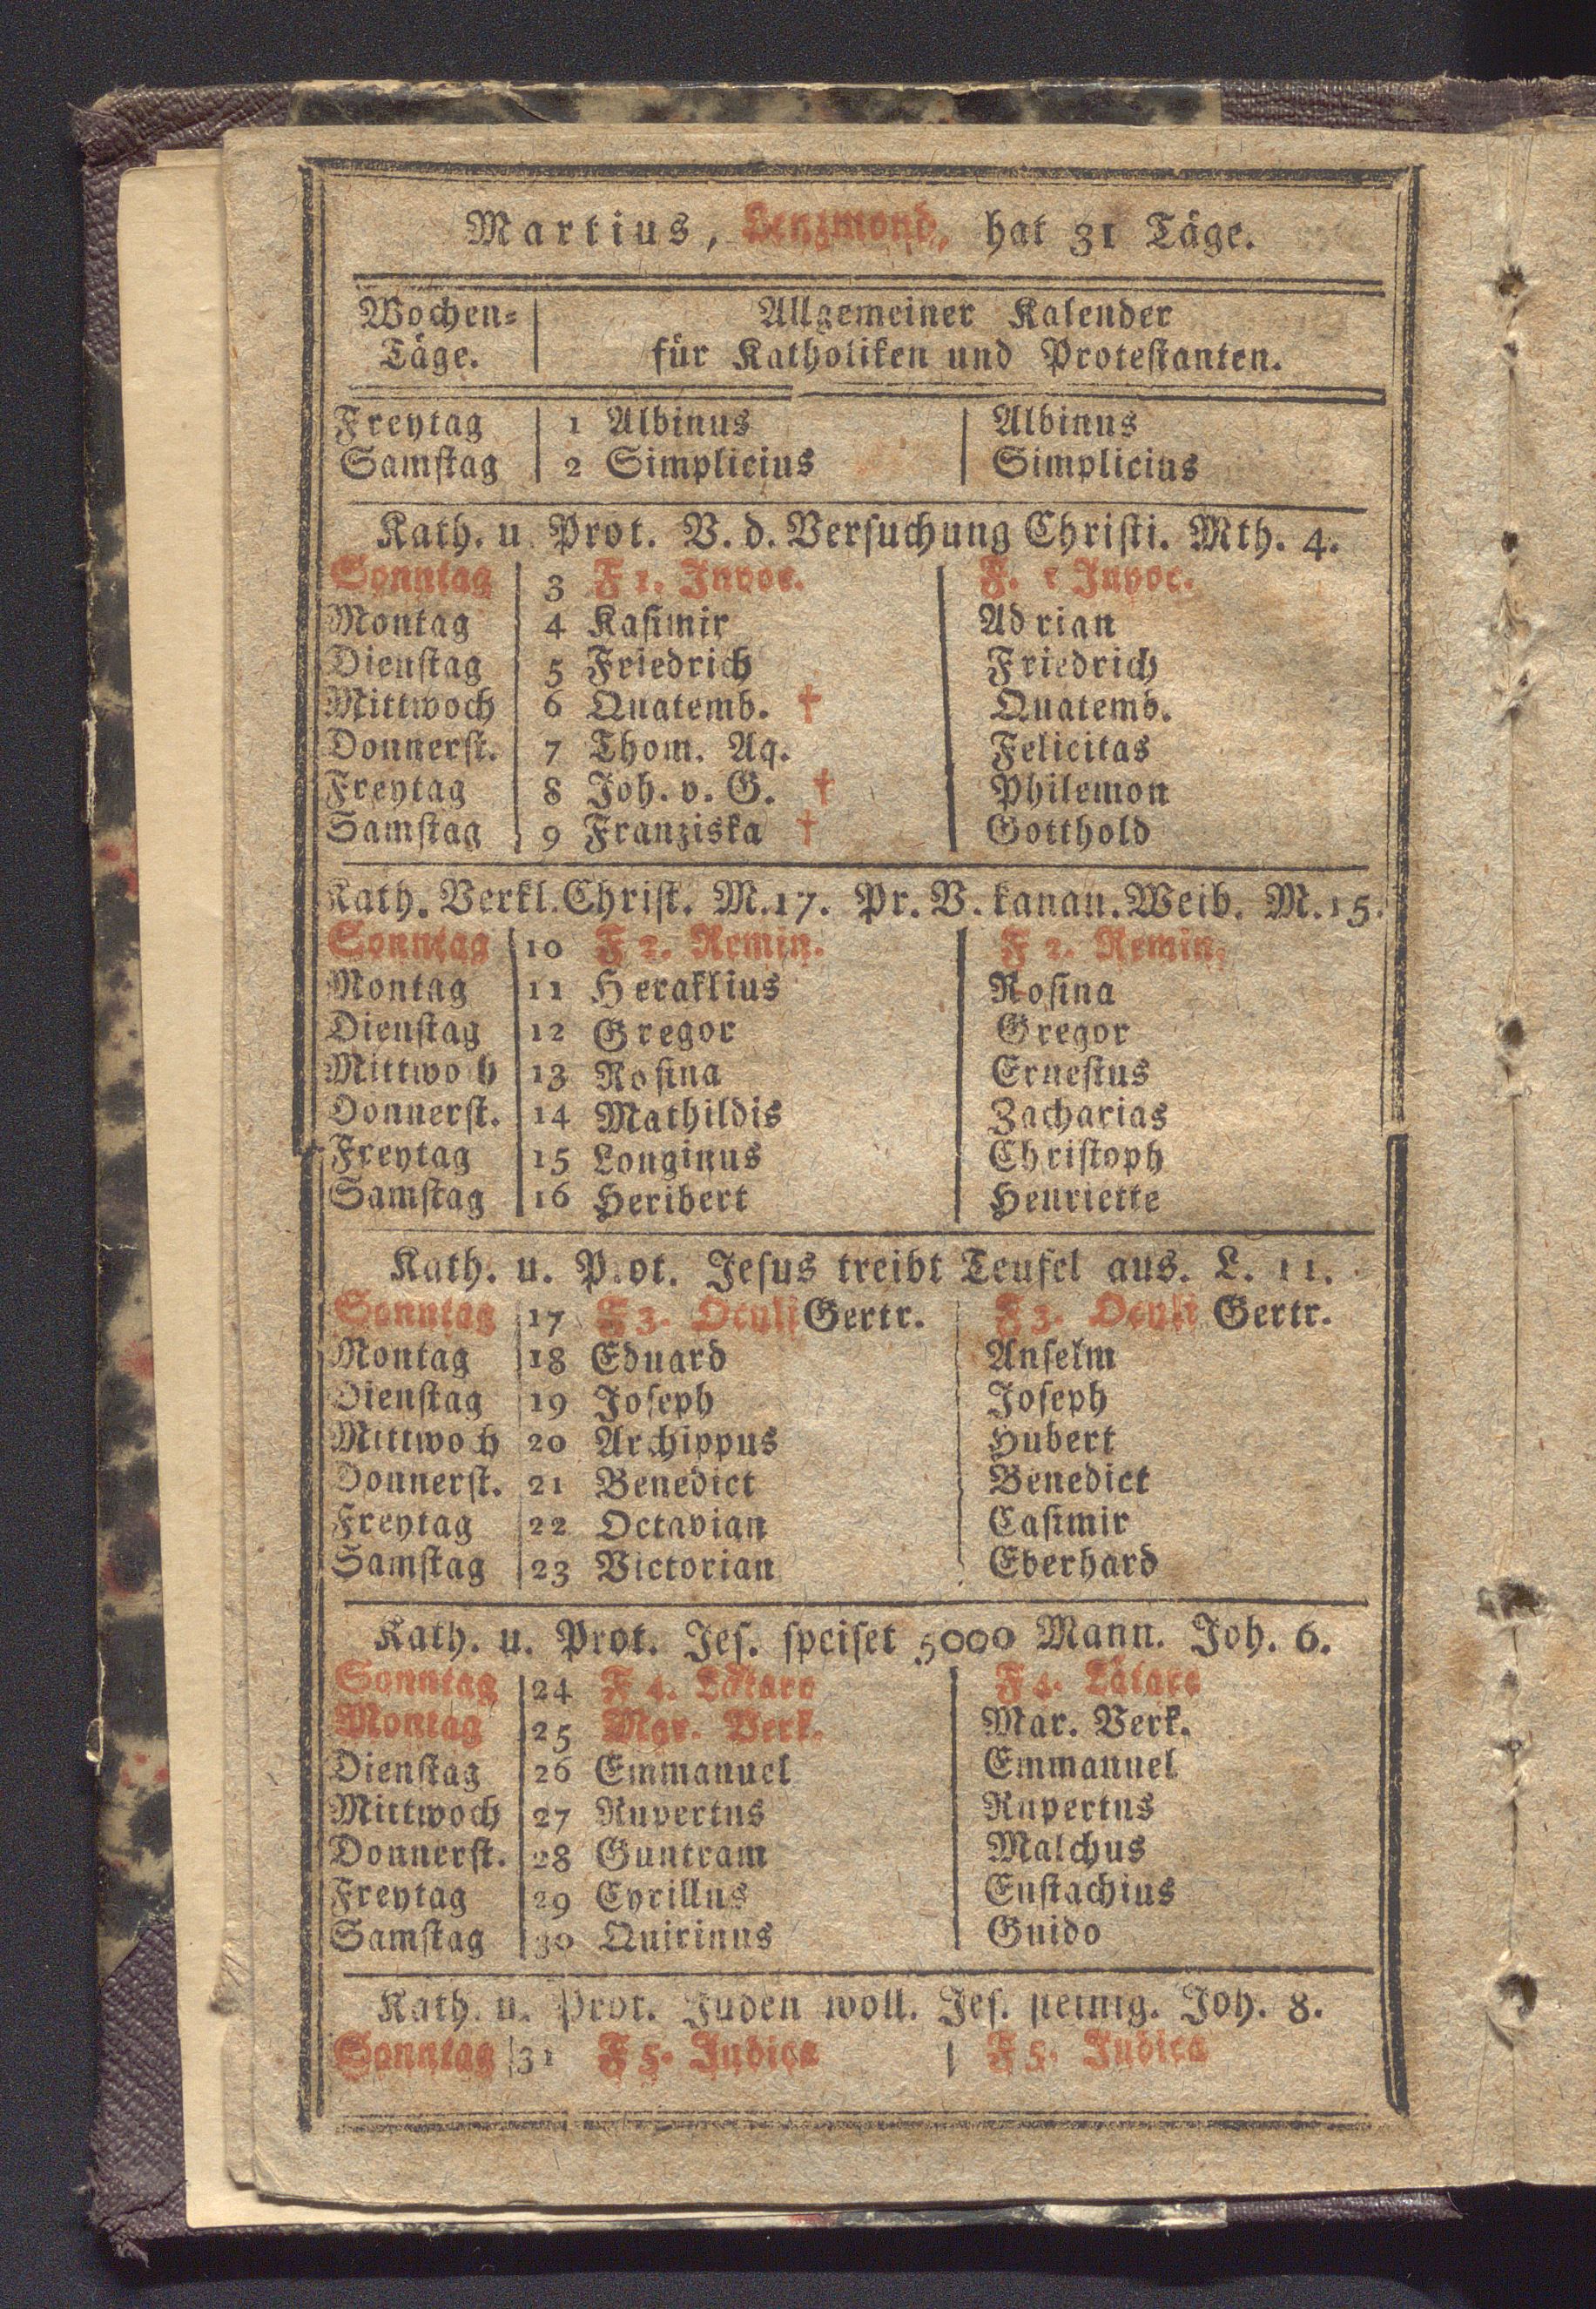 Martius, Lenzmond, hat 31 Täge.
Wochen= Allgemeiner Kalender
Täge. für Katholiken und Protestanten.
Freytag 1 Albinus Albinus
Samstag 2 Simplicius Simplicius
Kath. u. Prot. V. d. Versuchung Christi. Mth. 4.
Sonntag 3 F 1. Invoc. F. 1 Invoc.
Montag 4 Kasimir Adrian
Dienstag 5 Friedrich Friedrich
Mittwoch 6 Quatemb. † Quatemb.
Donnerst. 7 Thom. Aq. Felicitas
Freytag 8 Joh. v. G. † Philemon
Samstag 9 Franziska † Gotthold
Kath. Verkl. Christ. M. 17. Pr. V. kanan. Weib. M. 15.
Sonntag 10 F 2. Remin. F 2. Remin.
Montag 11 Heraklius Rosina
Dienstag 12 Gregor Gregor
Mittwo h 13 Rosina Ernestus
Donnerst. 14 Mathildis Zacharias
Freytag 15 Longinus Christoph
Samstag 16 Heribert Henriette
Kath. u. Prot. Jesus treibt Teufel aus. L. 11.
Sonntag 17 F 3. Oculi Gertr. F 3. Oculi Gertr.
Montag 18 Eduard Anselm
Dienstag 19 Joseph Joseph
Mittwoch 20 Archippus Hubert
Donnerst. 21 Benedict Benedict
Freytag 22 Octavian Casimir
Samstag 23 Victorian Eberhard
Kath. u. Prot. Jes. speiset 5000 Mann. Joh. 6.
Sonntag 24 F 4. Lätare F 4. Lätare
Montag 25 Mar. Verk. Mar. Verk.
Dienstag 26 Emmanuel Emmanuel
Mittwoch 27 Rupertus Rupertus
Donnerst. 28 Guntram Malchus
Freytag 29 Cyrillus Eustachius
Samstag 30 Quirinus Guido
Kath. u. Prot. Juden woll. Jes. steinig. Joh. 8.
Sonntag 31 F 5. Judica F 5. Judica